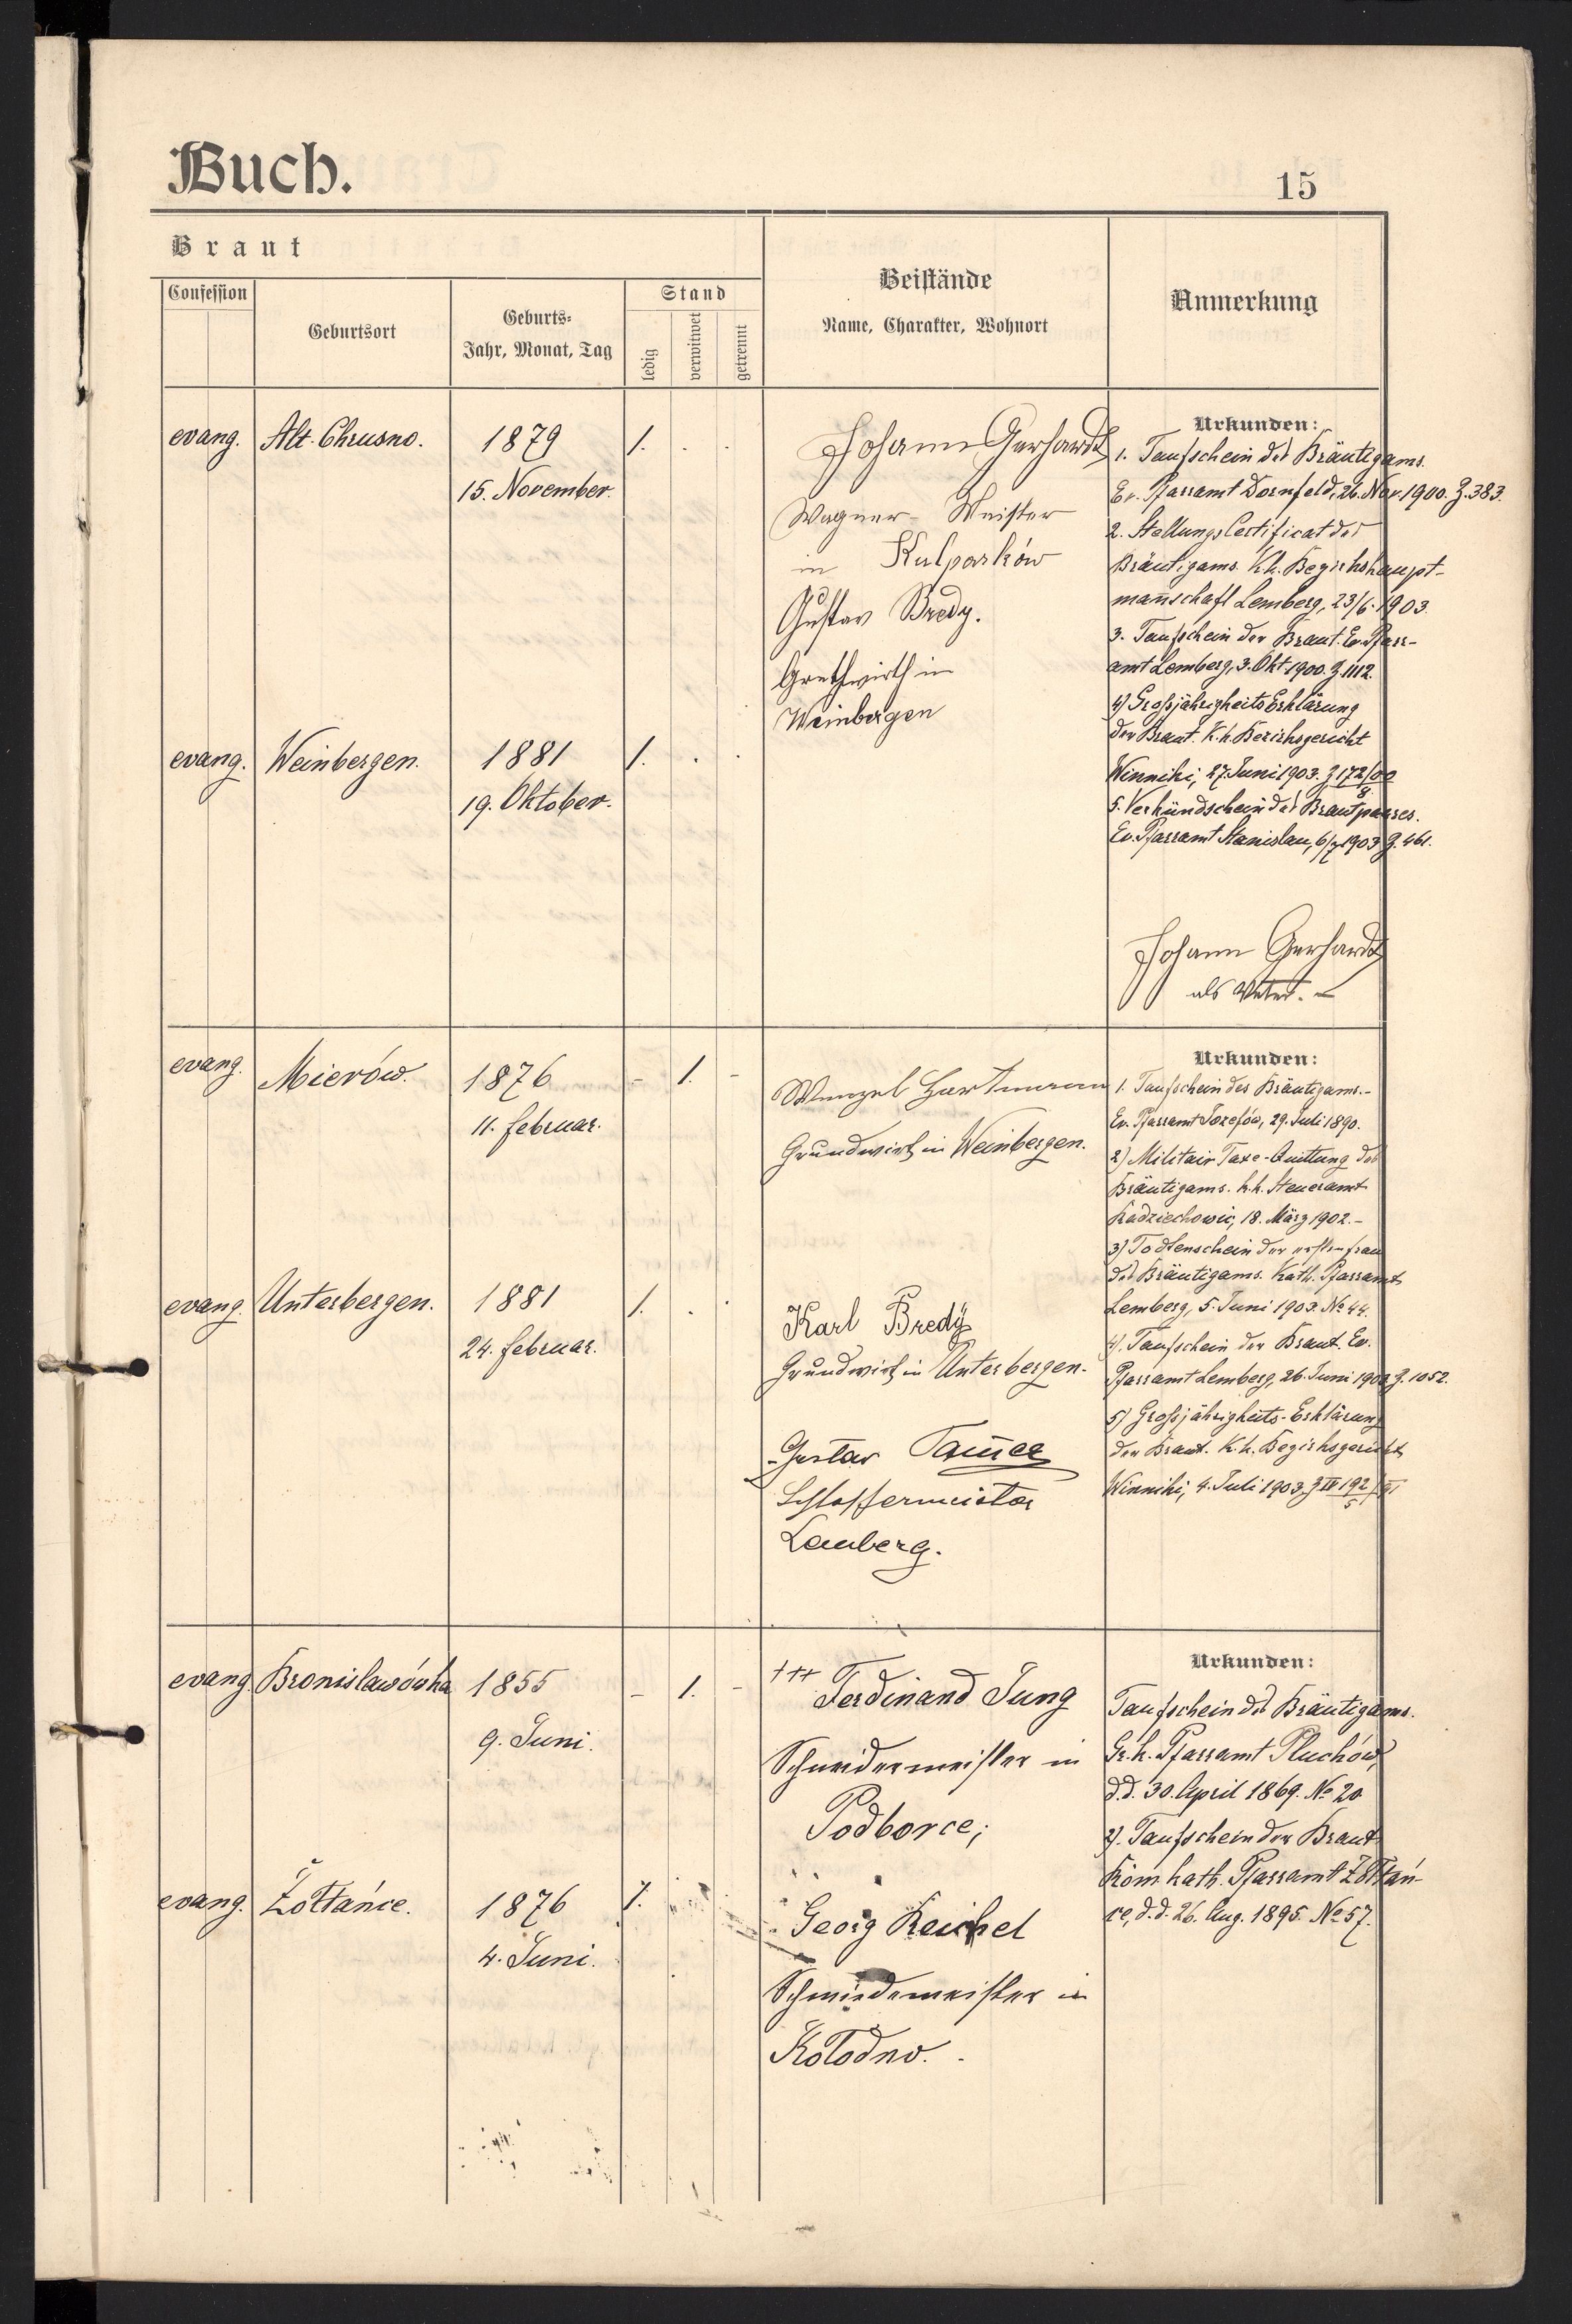 Buch.
15
Braut
Confession
Geburtsort
Geburts-
Jahr, Monat, Tag
Stand
ledig
verwitwet
getrennt
Beistände
Name, Charakter, Wohnort
Anmerkung
evang. Alt. Chrusno. 1879 1. . .
15. November.
Johann Gerhardt
Wagner-Meister
in Kulparków
Gustav Bredy.
Grundwirth in
Weinbergen
evang. Weinbergen. 1881 1. . .
19. Oktober.
Urkunden:
1. Taufschein des Bräutigams.
Ev. Pfarramt Dornfeld, 26. Nov. 1900. Z. 383.
2. Stellungs Certificat des
Bräutigams. K.k. Bezirkshaupt-
mannschaft Lemberg, 23/6. 1903.
3. Taufschein der Braut. Ev. Pfarr-
amt Lemberg, 3. Okt. 1900. Z. 1112.
4) Großjährigkeits Erklärung
der Braut. K.k. Bezirksgericht
Winniki, 27. Juni 1903. Z 172/00
8
5. Verkündschein des Brautpaares.
Ev. Pfarramt Stanislau, 6/7 1903 Z. 461.
Johann Gerhardt
als Vater.
evang. Mierów. 1876 - 1. -
11. Februar.
Wenzel Hartmann
Grundwirth in Weinbergen.
evang. Unterbergen. 1881 1. . .
24. Februar.
Karl Bredy
Grundwirth in Unterbergen.
Gustav
Schlossermeister
Lemberg.
Urkunden:
1. Taufschein des Bräutigams.-
Ev. Pfarramt Józefów, 29. Juli 1890.
2) Militair Taxe-Quittung des
Bräutigams. k.k. Steueramt
Radziechowic, 18. März 1902.-
3) Todtenschein der ersten Frau
des Bräutigams. Kath. Pfarramt
Lemberg, 5. Juni 1903. No 44.
4). Taufschein der Braut. Ev.
Pfarramt Lemberg, 26. Juni Z. 1052.
5) Großjährigkeits-Erklärung
der Braut. K.k. Bezirksgericht
Winniki, 4. Juli 1903, Z IV 192
5
evang. Bronislawówka 1855 - 1. -
9. Juni.
+++ Ferdinand Jung
Schneidermeister in
Podborce;
evang. Żółtańce. 1876 1.
4. Juni.
Georg Reichel
Schmiedemeister in
Kołodno.
Urkunden:
Taufschein des Bräutigams.
Gr. k. Pfarramt Pluchów,
d.d. 30. April 1869. No 20
2). Taufschein der Braut
Röm. kath. Pfarramt Żółtań-
ce, d.d. 26. Aug. 1895. No 57.